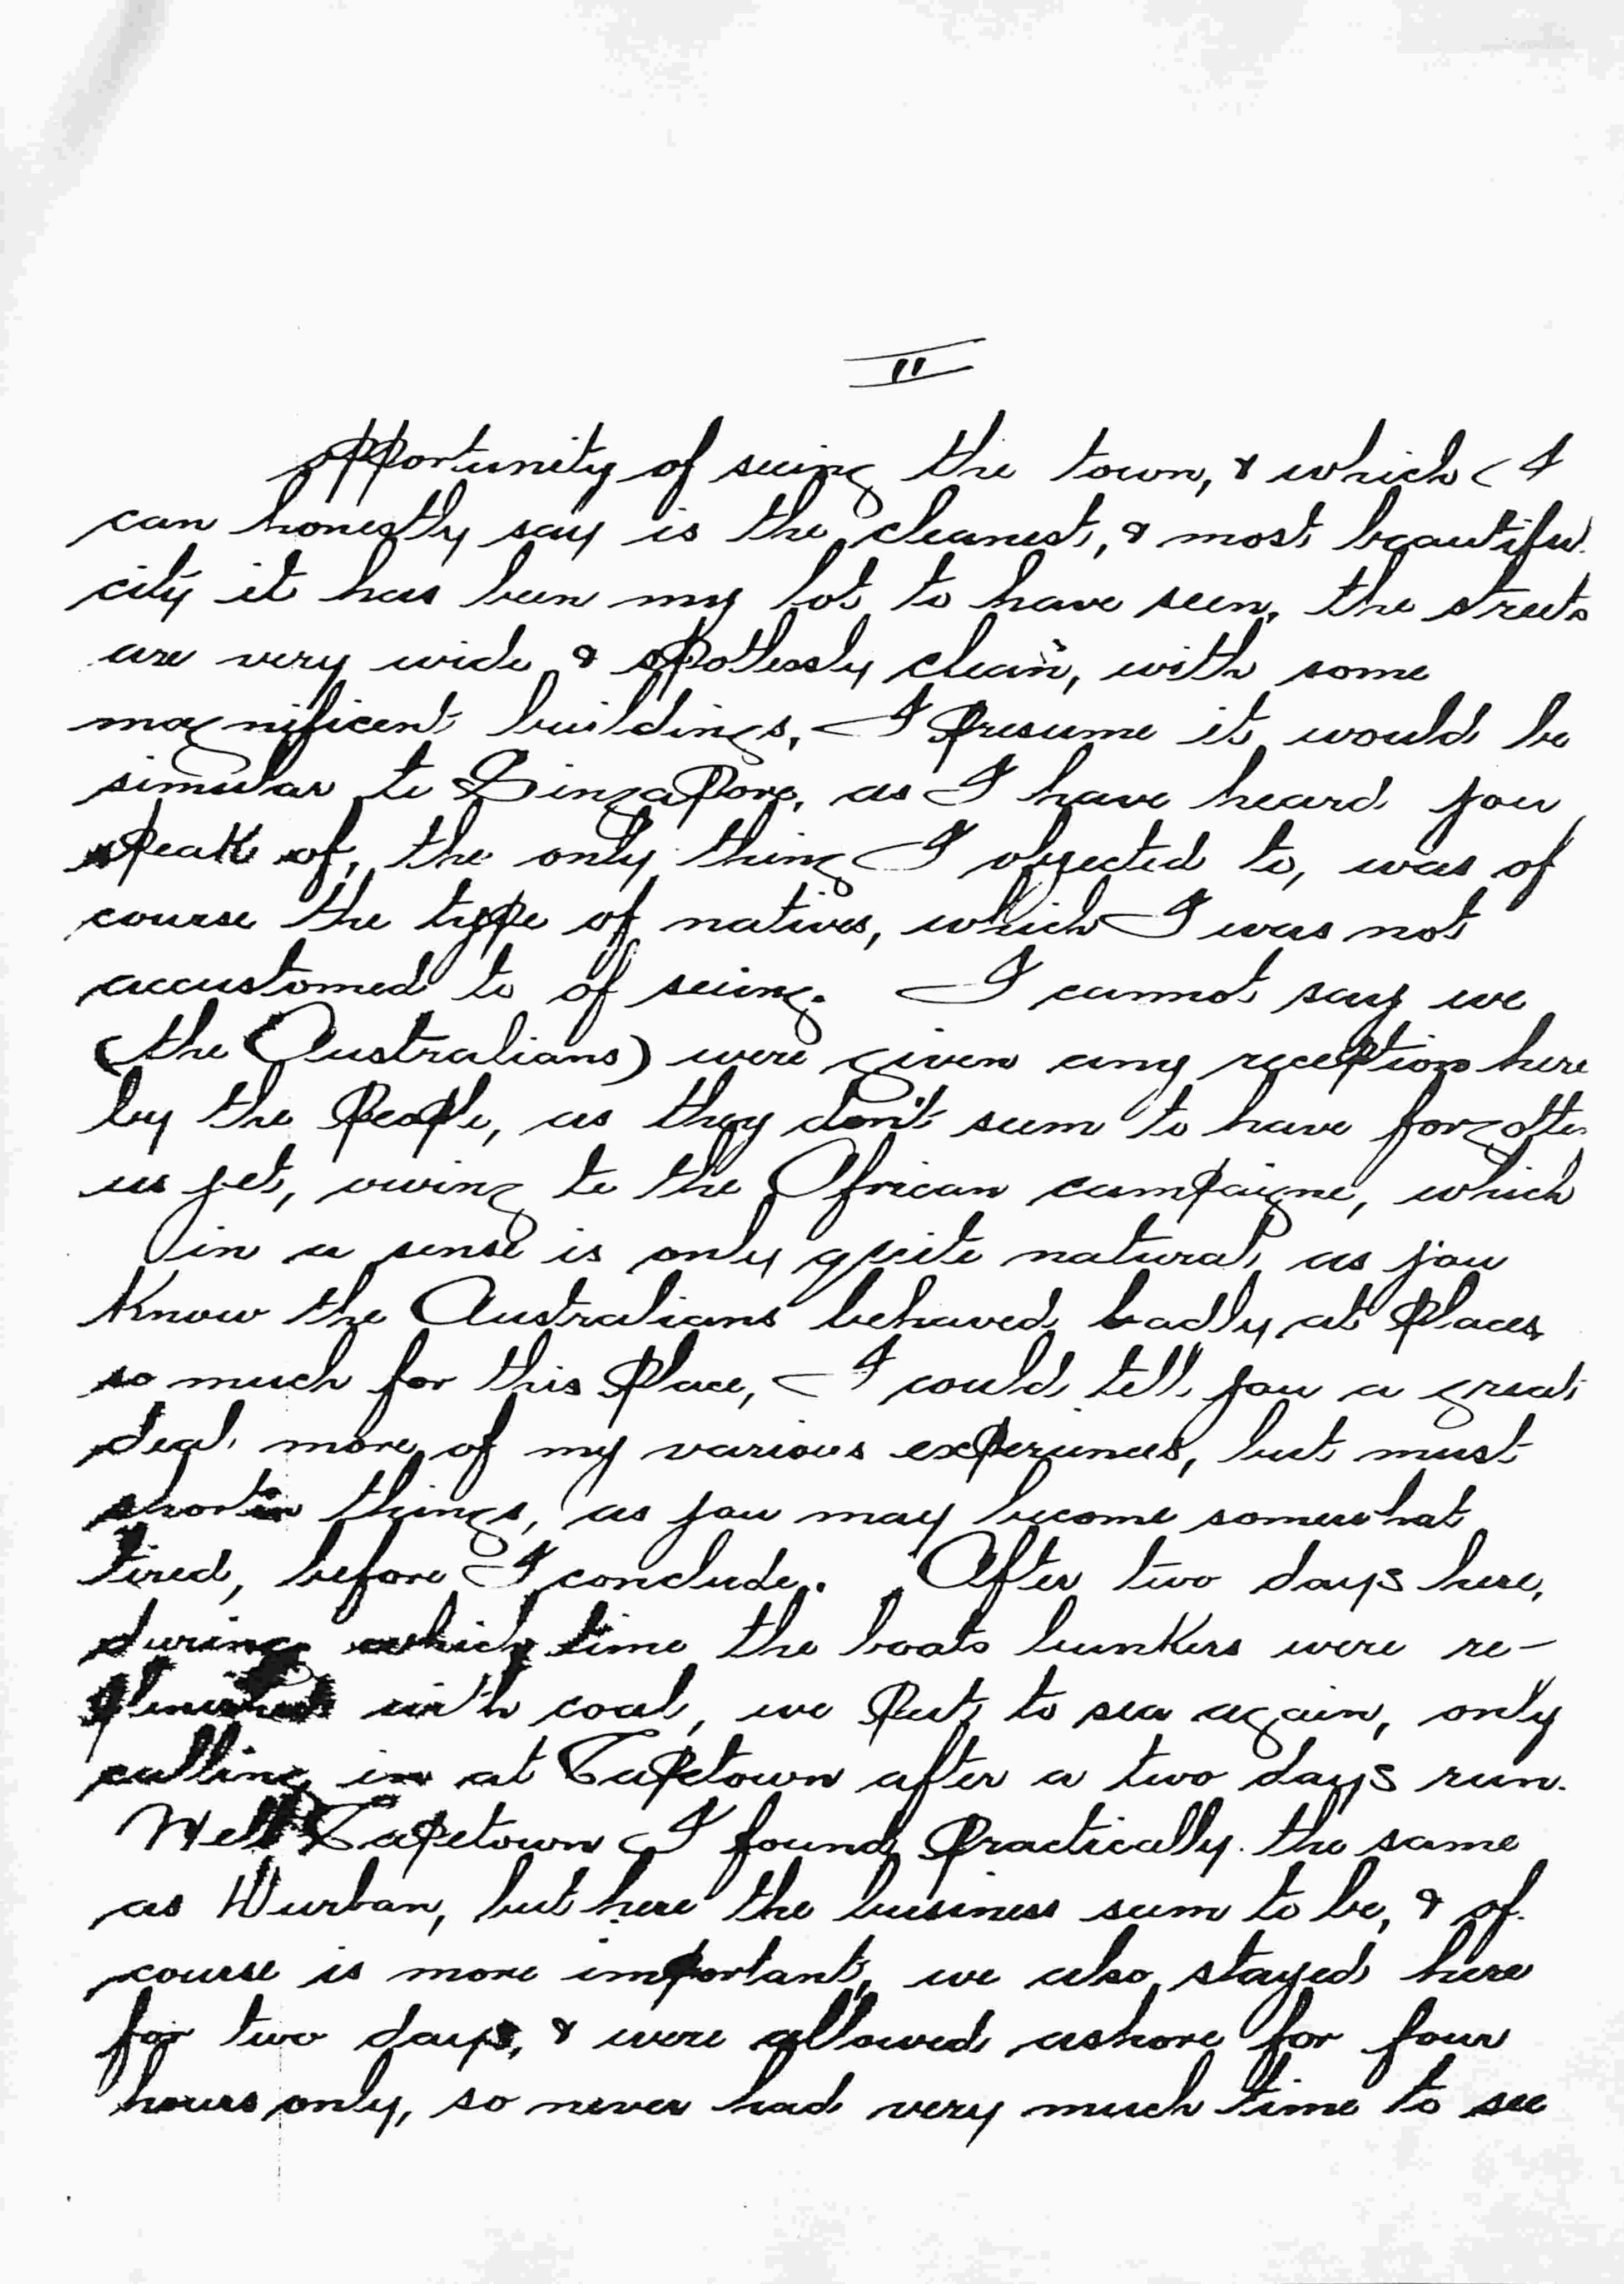 II
opportunity of seeing the town, & which I
can honestly say is the cleanest, & most beautiful
city it has been my lot to have seen, the streets
are very wide & spotlessly clean, with some
magnificent buildings, I presume it would be
simular to Singapore, as I have heard you
speak of, the only thing I objected to, was of
course the type of natives, which I was not
accustomed to of seeing. I cannot say we
(the Australians) were given any reception here
by the people, as they don't seem to have forgotten
us yet, owing to the African campaigne, which
in a sense is only quite natural, as you
know the Australians behaved badly at places,
so much for this place, I could tell you a great
deal more of my various experiences, but must
shorten things, as you may become somewhat
tired, before I conclude. After two days here,
during which time the boats bunkers were re-
plenished with coal, we put to sea again, only
calling in at Capetown after a two days run.
Well Capetown I found practically the same
as Durban, but here the business seem to be, & of
course is more important, we also stayed here
for two days, & were allowed ashore for four
hours only, so never had very much time to see